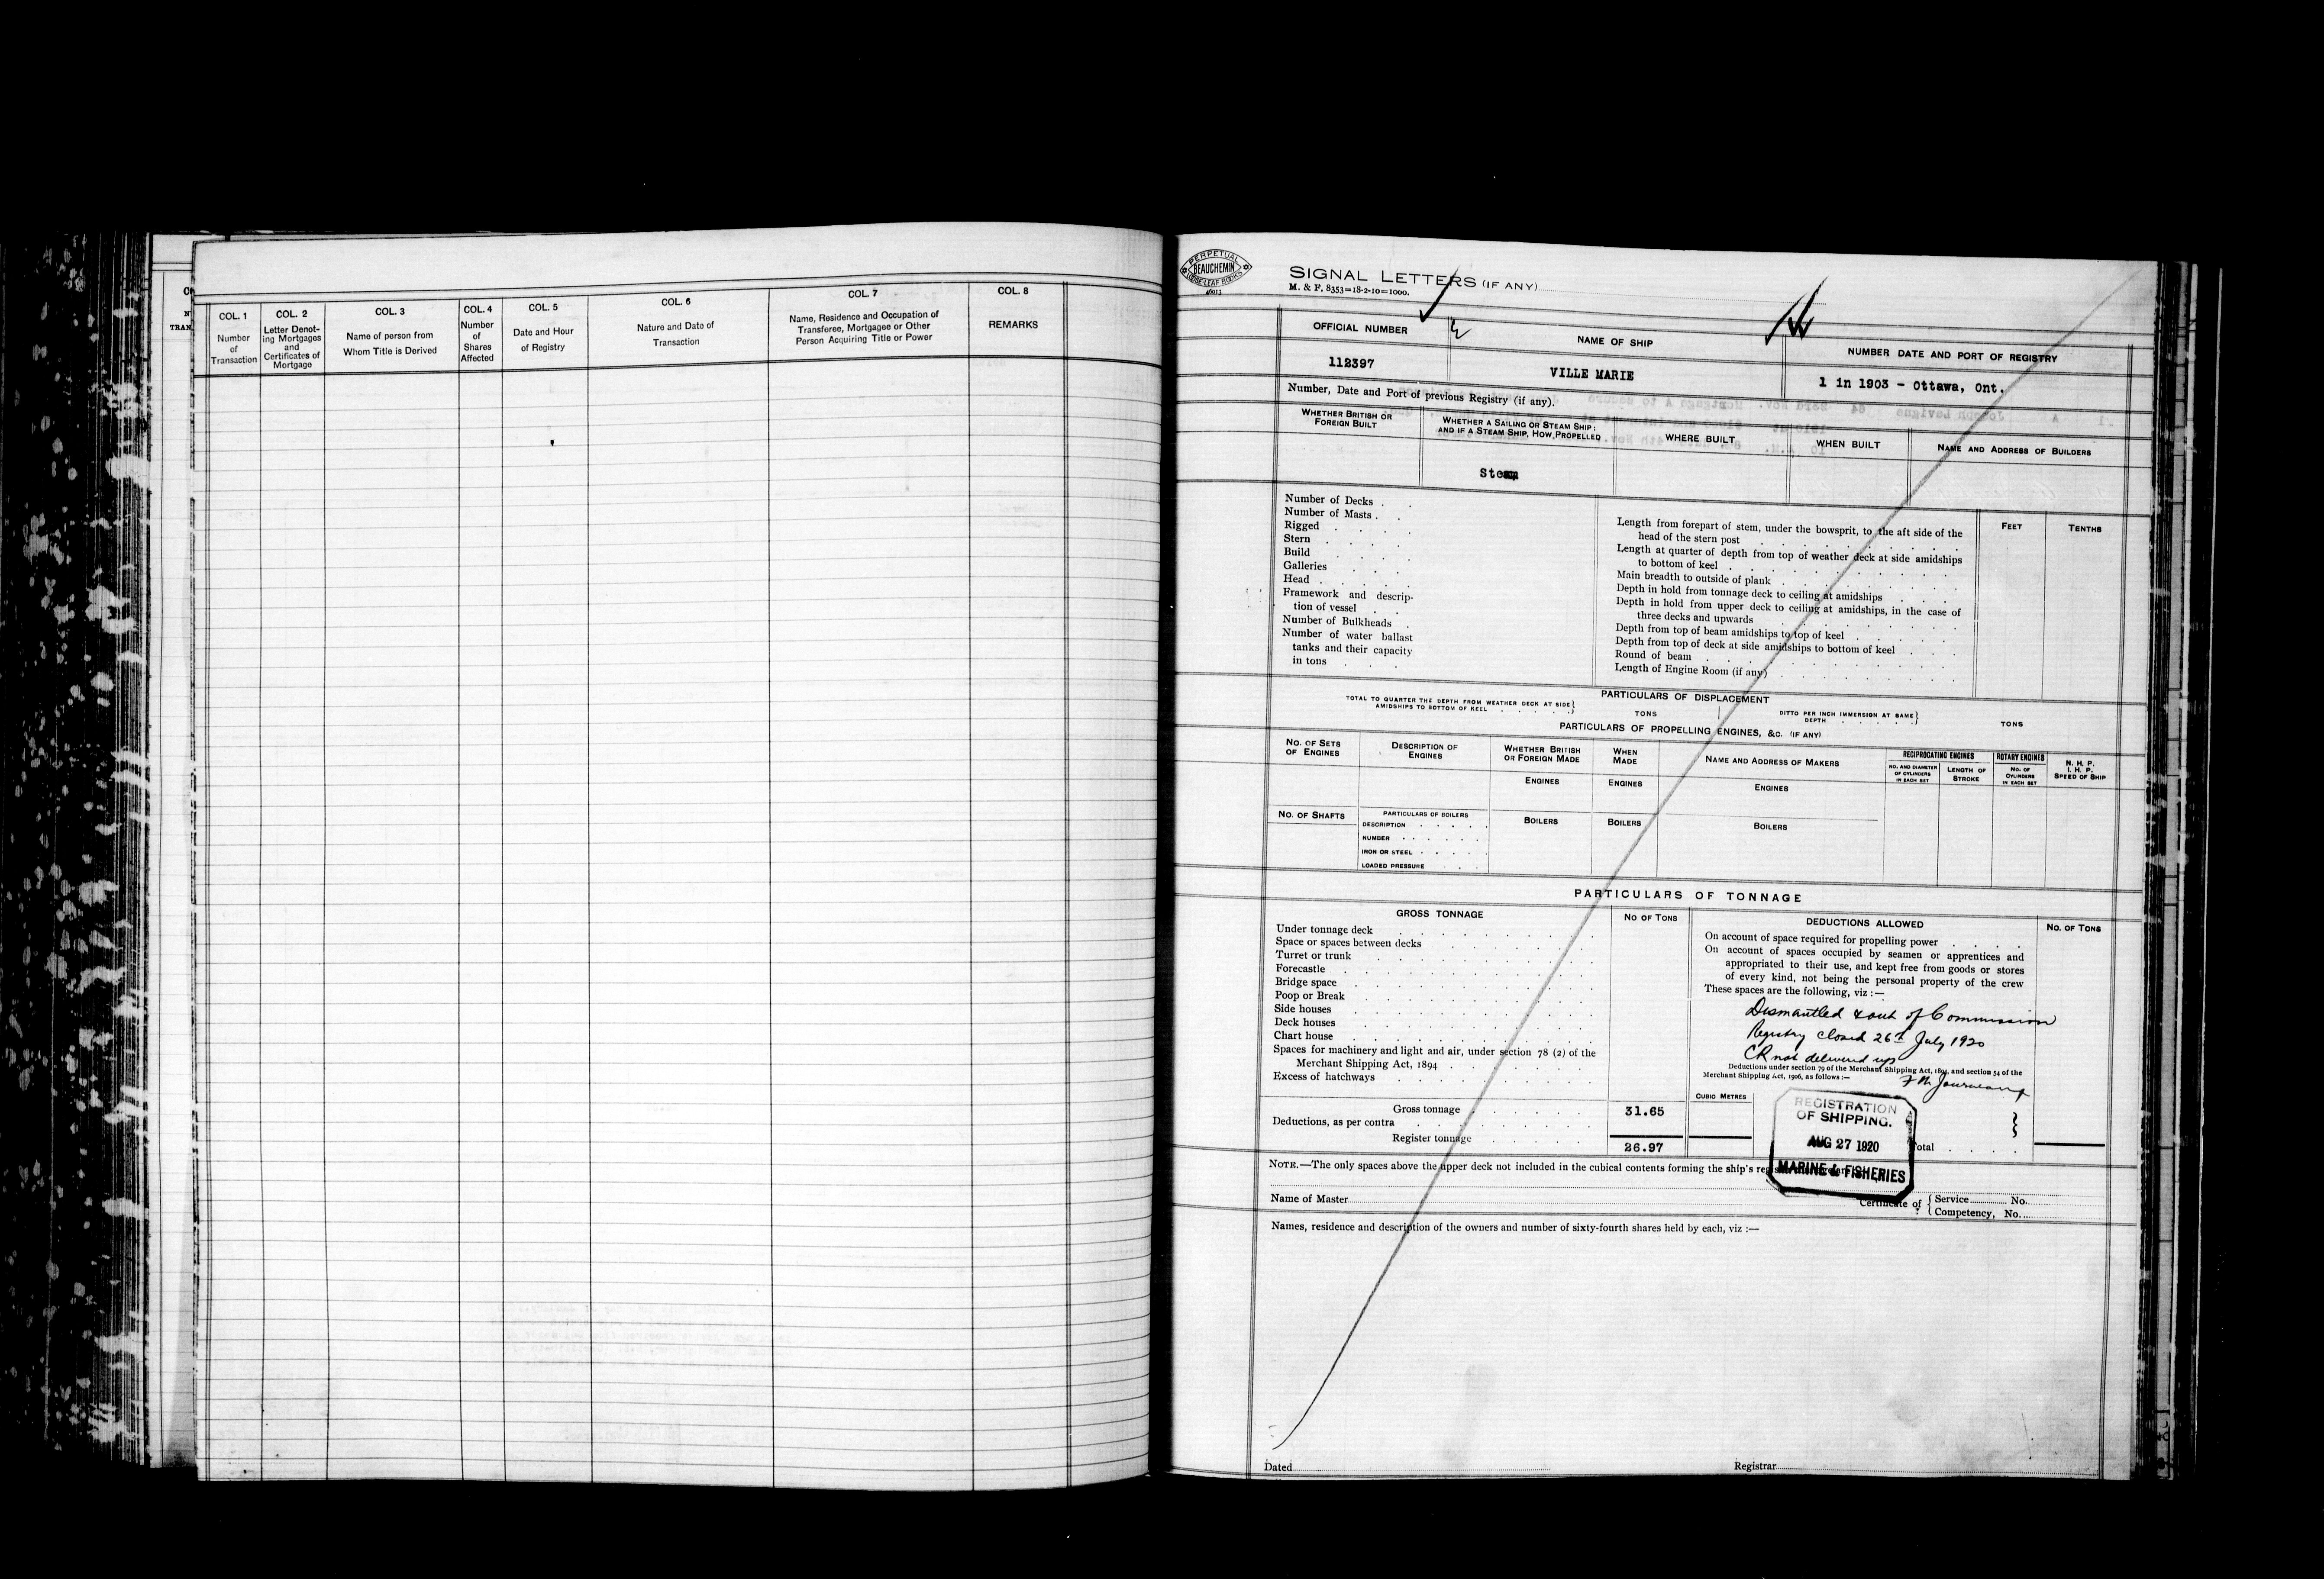 COL. 1
Number
of
Transaction
COL. 2
Letter Denot-
ing Mortgages
and
Certificates of
Mortgage
COL. 3
Name of person from
Whom Title is Derived
COL. 4
Number
of
Shares
Affected
COL. 5
Date and Hour
of Registry
COL. 6
Nature and Date of
Transaction
COL. 7
Name, Residence and Occupation of
Transferee, Mortgagee or Other
Person Acquiring Title or Power
COL. 8
REMARKS
PERPETUAL
BEAUCHEMIN
LOOSE LEAF BOOKS
SIGNAL LETTERS (IF ANY)
M. & F. 8353=18-2-10=1000.
OFFICIAL NUMBER
112397
NAME OF SHIP
VILLE MARIE
NUMBER DATE AND PORT OF REGISTRY
1 in 1903 - Ottawa, Ont.
Number, Date and Port of previous Registry (if any).
WHETHER BRITISH OR
FOREIGN BUILT
WHETHER A SAILING OR STEAM SHIP:
AND IF A STEAM SHIP, HOW PROPELLED
Steam
WHERE BUILT
WHEN BUILT
NAME AND ADDRESS OF BUILDERS
Number of Decks
Number of Masts
Rigged
Stern
Build
Galleries
Head
Framework and descrip-
tion of vessel
Number of Bulkheads
Number of water ballast
tanks and their capacity
in tons
FEET
TENTHS
Length from forepart of stem, under the bowsprit, to the aft side of the
head of the stern post
Length at quarter of depth from top of weather deck at side amidships
to bottom of keel
Main breadth to outside of plank
Depth in hold from tonnage deck to ceiling at amidships
Depth in hold from upper deck to ceiling at amidships, in the case of
three decks and upwards
Depth from top of beam amidships to top of keel
Depth from top of deck at side amidships to bottom of keel
Round of beam
Length of Engine Room (if any)
PARTICULARS OF DISPLACEMENT
TOTAL TO QUARTER THE DEPTH FROM WEATHER DECK AT SIDE
AMIDSHIPS TO BOTTOM OF KEEL
TONS
DITTO PER INCH IMMERSION AT SAME
DEPTH
TONS
PARTICULARS OF PROPELLING ENGINES, &C. (IF ANY)
NO. OF SETS
OF ENGINES
DESCRIPTION OF
ENGINES
WHETHER BRITISH
OR FOREIGN MADE
WHEN
MADE
NAME AND ADDRESS OF MAKERS
RECIPROCATING ENGINES
NO. AND DIAMETER
OF CYLINDERS
IN EACH SET
LENGTH OF
STROKE
ROTARY ENGINES
NO. OF
CYLINDERS
IN EACH SET
N. H. P.
I. H. P.
SPEED OF SHIP
ENGINES
ENGINES
ENGINES
NO. OF SHAFTS
PARTICULARS OF BOILERS
DESCRIPTION
NUMBER
IRON OR STEEL
LOADED PRESSURE
BOILERS
BOILERS
BOILERS
PARTICULARS OF TONNAGE
GROSS TONNAGE
NO OF TONS
Under tonnage deck
Space or spaces between decks
Turret or trunk
Forecastle
Bridge space
Poop or Break
Side houses
Deck houses
Chart house
Spaces for machinery and light and air, under section 78 (2) of the
Merchant Shipping Act, 1894
Excess of hatchways
Gross tonnage 31.65
Deductions, as per contra
Register tonnage 26.97
DEDUCTIONS ALLOWED
NO. OF TONS
On account of space required for propelling power
On account of spaces occupied by seamen or apprentices and
appropriated to their use, and kept free from goods or stores
of every kind, not being the personal property of the crew
These spaces are the following, viz :—
Dismantled & out of Commission
Registry closed 26th July 1920
CR not delivered up
Deductions under section 79 of the Merchant Shipping Act, 1894, and section 54 of the
Merchant Shipping Act, 1906, as follows :—
CUBIC METRES
REGISTRATION
OF SHIPPING.
AUG 27 1920
MARINE & FISHERIES
Total
NOTE.—The only spaces above the upper deck not included in the cubical contents forming the ship's
Name of Master
Certificate of
Service No.
Competency, No.
Names, residence and description of the owners and number of sixty-fourth shares held by each, viz :—
Dated
Registrar